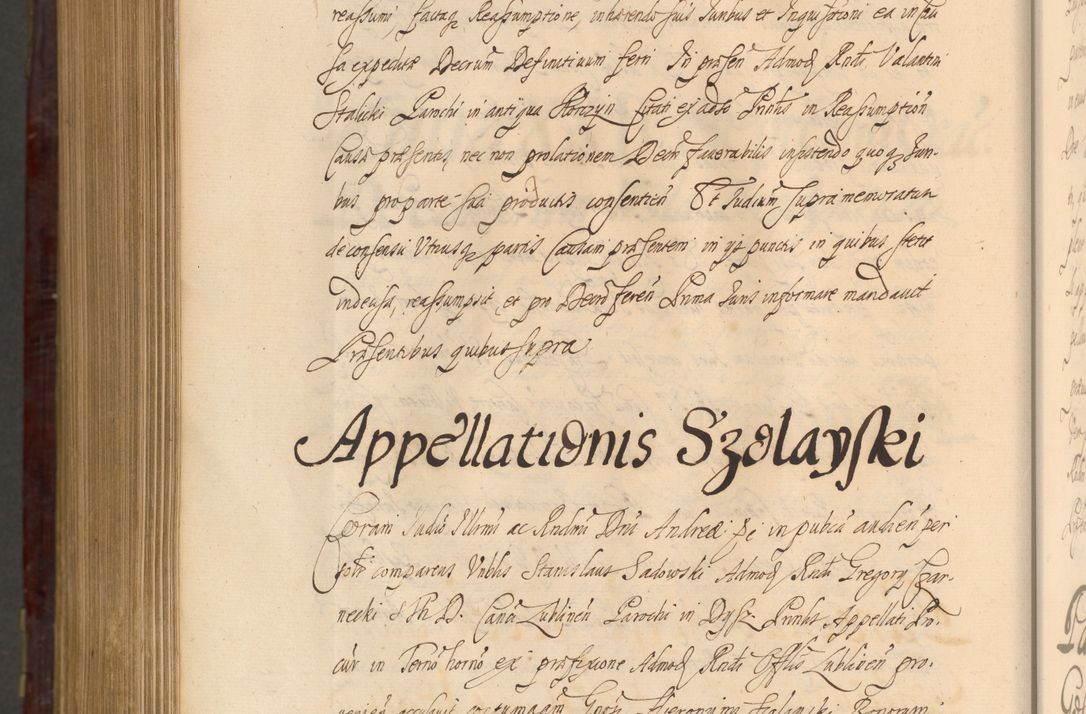 reassumi, factaq Reassumptione, inhærendo suis Iuribus et Inquisitioni ea in cau
sa expeditæ Decrum Definitivum ferri In præsen Admod Rndi Valantini
Stalicki Parochi in antiqua Korczyn Citati ex adso Prnlis in Reassumption
Causæ præsentis, nec non prolationem Decri favorabilis insistendo quoq Iuri-
bus pro parte sui productis consentien Et Iudium supra memoratum
de consensu Utriusq partis Causam præsentem in ys punctis in quibus stetit
indecisa, reassumpsit et pro Decro feren Prima Iuris informare mandavit
Præsentibus quibus supra
Appellationis Szolayski
Coram Iudio Illrmi ac Rndmi Dni Andreæ pt in publca audien per
solr comparens Vnblis Stanislaus Sadowski Admod Rndi Gregory Czar-
necki S Th D. Canci Lublinen Parochi in Dysz. Prnlis Appellati Pro-
cur in Termo horno ex præfixione Admod Rndi Offlis Lublinen pro-